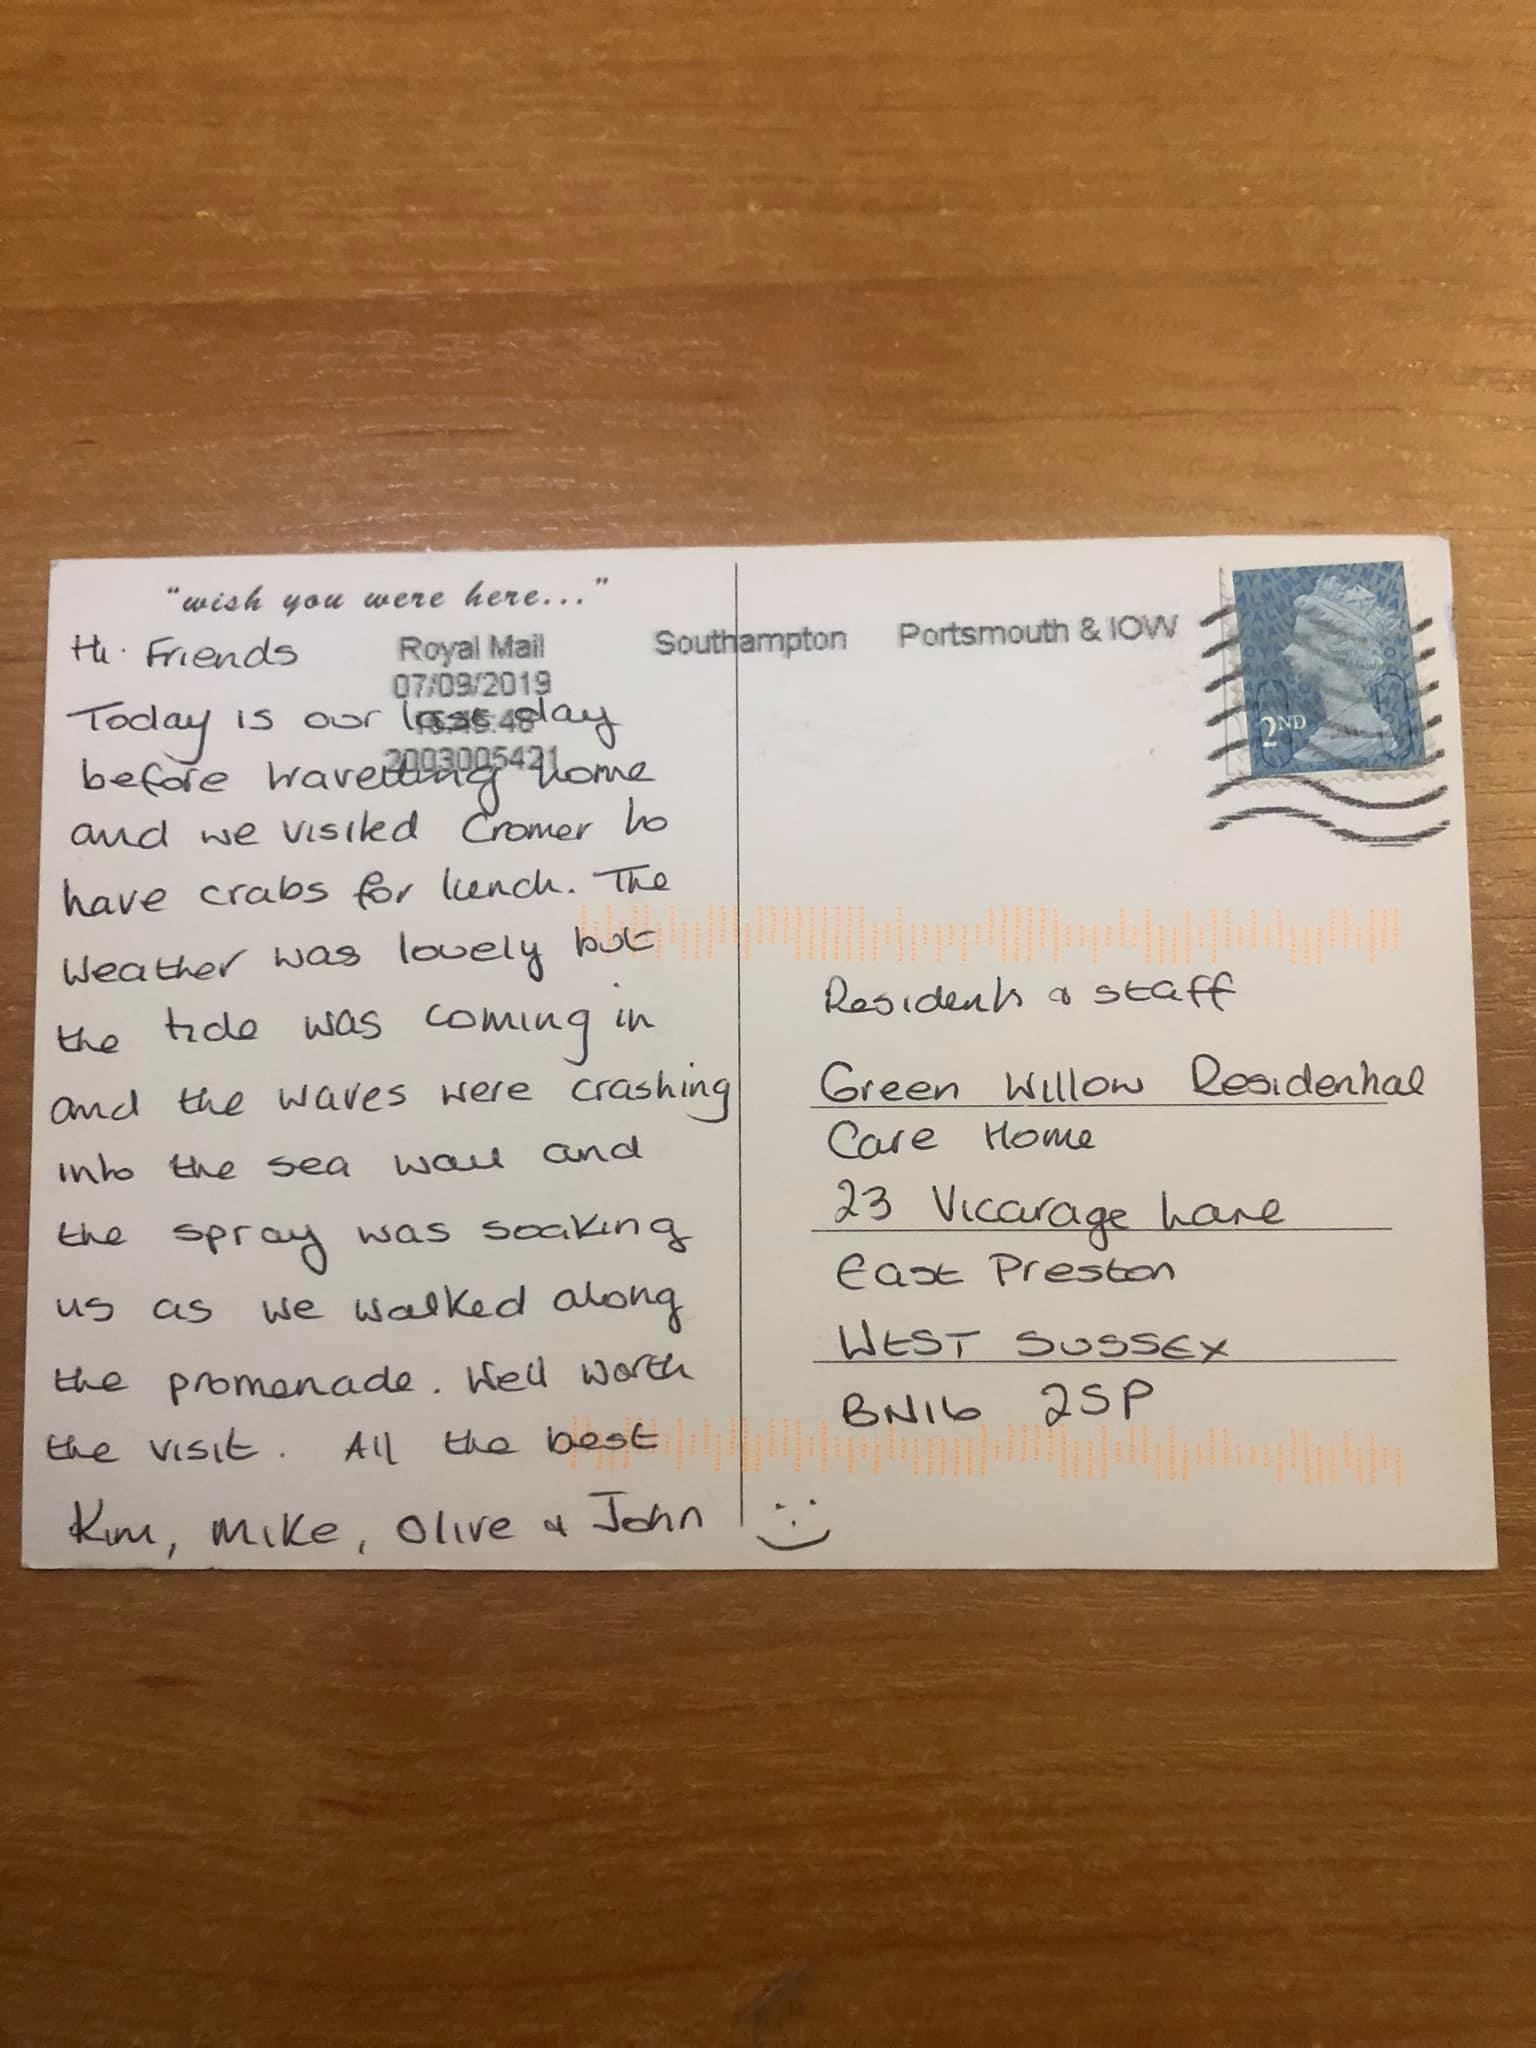 "wish you were here..."
Hi Friends
Today is our last day
before travelling home
and we visited Cromer to
have crabs for lunch. The
weather was lovely but
the tide was coming in
and the waves were crashing
into the sea wall and
the spray was soaking
us as we walked along
the promenade. Well worth
the visit. All the best
Kim, Mike, Olive & John
Royal Mail
07/09/2019
2003005421
Southampton Portsmouth & IOW
2ND
Residents & staff
Green Willow Residential
Care Home
23 Vicarage Lane
East Preston
WEST SUSSEX
BN16 2SP